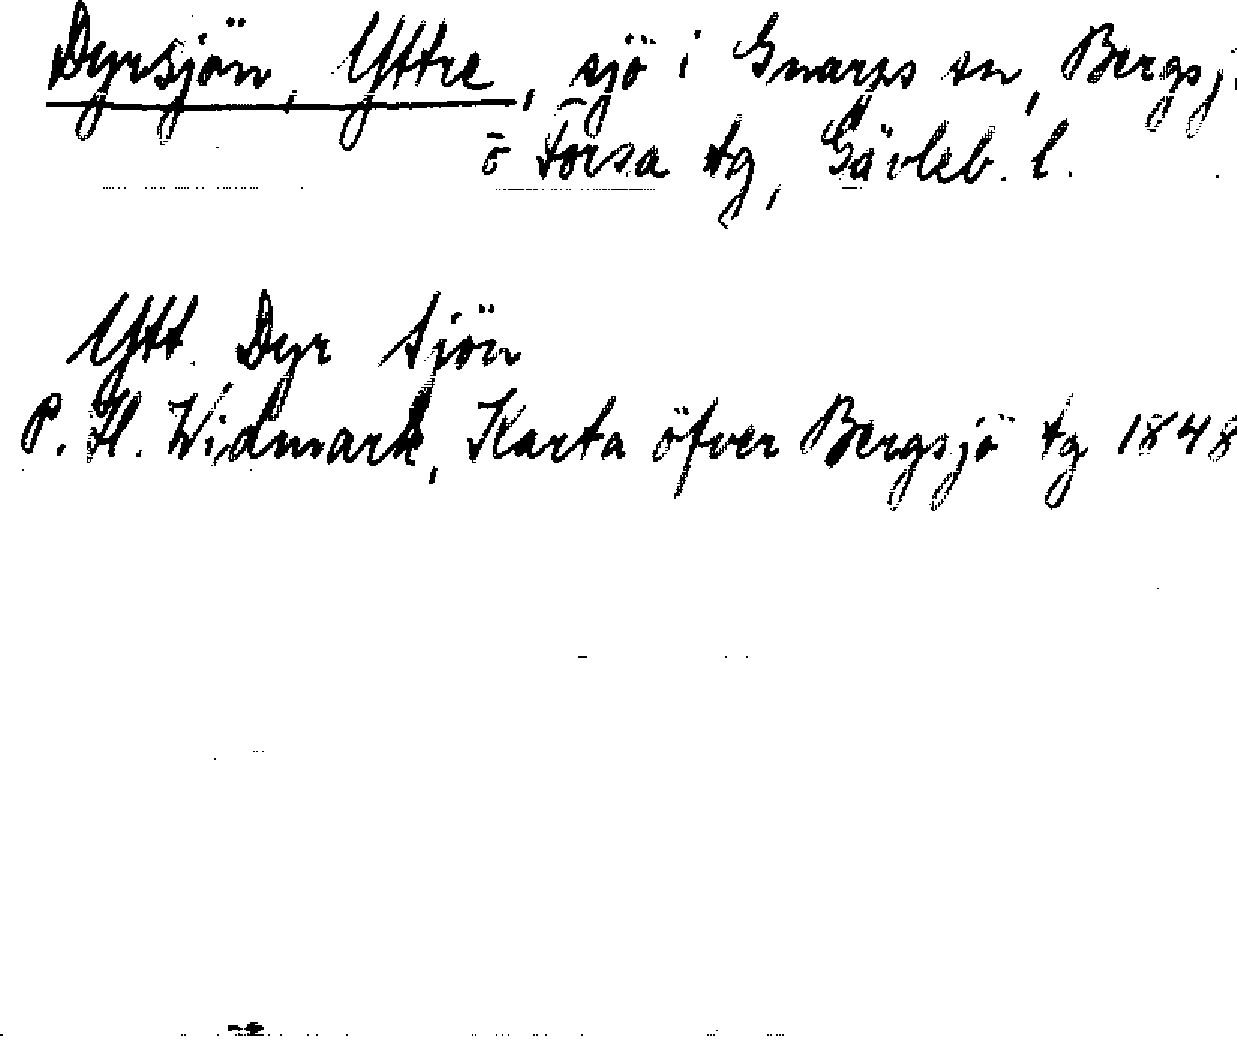 Dyrsjön, Yttre, sjö i Gnarps sn, Bergsj
o Forsa tg, Gävleb. l.
Ytt. Dyr Sjön
P. H. Widmark, Karta öfver Bergsjö tg 1848